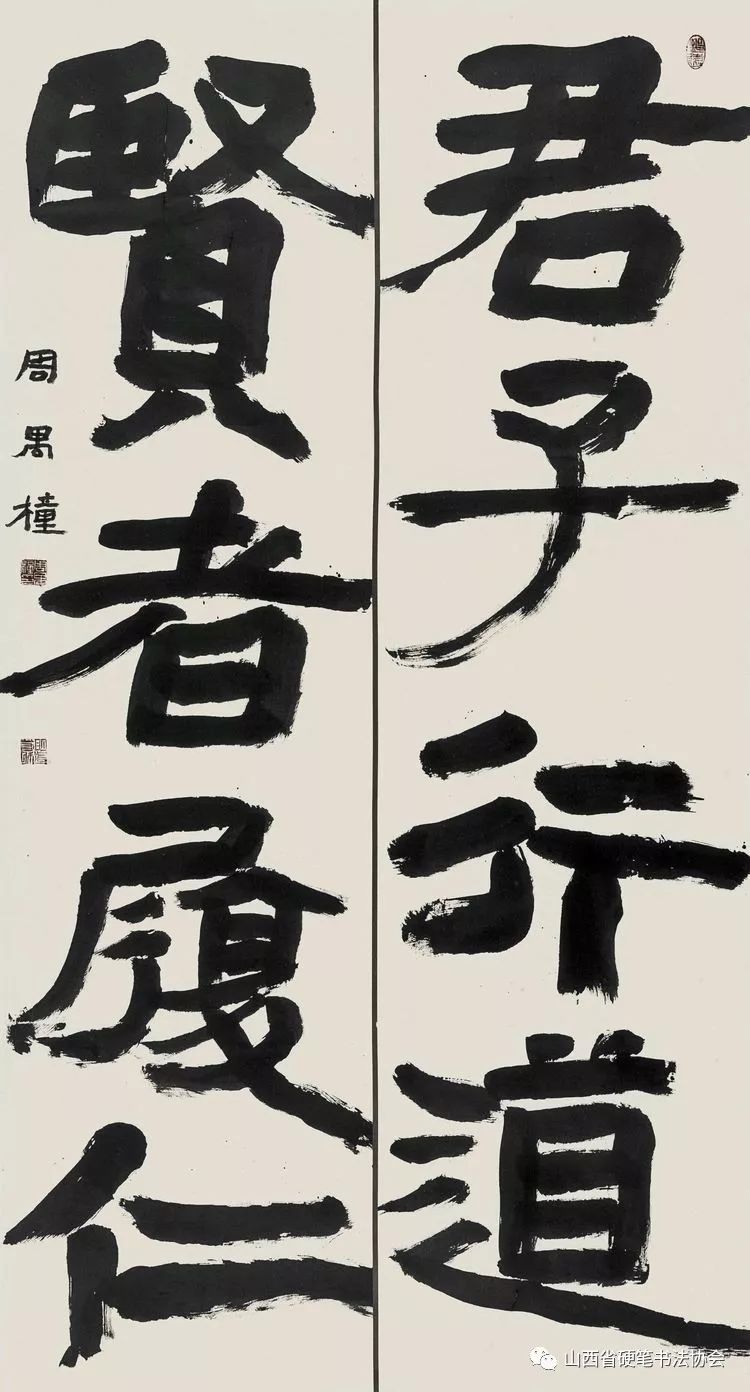 君子行道
賢者履仁
周禺橦
山西省硬笔书法协会